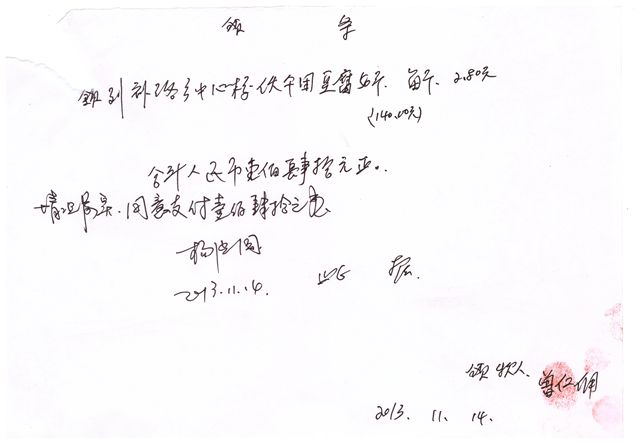 领 条
领到补路乡中心校伙午用豆腐50斤. 每斤. 2.80元
(140.00元)
合计人民币壹佰肆拾元正.
情况属实.同意支付壹佰肆拾元.
2013.11.14.
此 据.
领款人. 曾仁
2013. 11. 14.